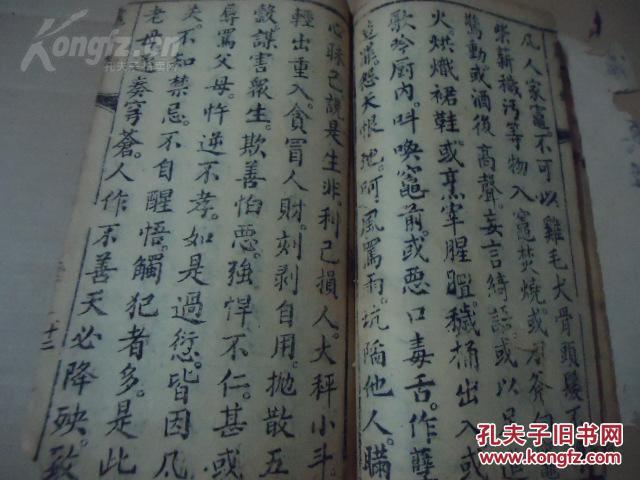 凡人家竈不可以雞毛犬骨頭髮
柴薪穢污等物入竈焚燒或刀斧
驚動或酒後高聲妄言綺語或以
火。烘熾裙鞋。或烹宰腥膻。穢桶出入或
歌吟厨内。呌喚竈前。或惡口毒舌。作孽
造罪。怨天恨地。呵風罵雨。坑陷他人。瞞
心昧己。說是生非。利己損人。大秤小斗。
輕出重入。貪冒人財。刻剥自用。抛散五
穀。謀害衆生。欺善怕惡。強悍不仁。甚或
辱罵父母。忤逆不孝。如是過愆。皆因凡
夫。不知禁忌。不自醒悟。觸犯者多。是此
老母。奏穹蒼。人作不善天必降殃。致
Kongfz.com
孔夫子旧书网
Kongfz.com
孔夫子旧书网
孔夫子旧书网
www.kongfz.com